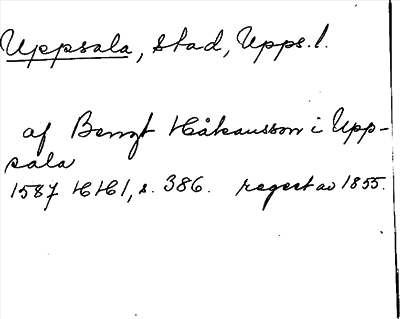 Uppsala, stad, Upps. l.
af Bengt Håkansson i Upp-
sala
1587 HH1, s. 386. regest av 1855.